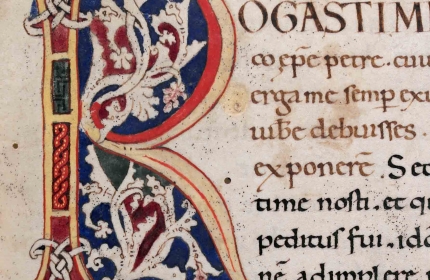 ROGASTI M
coep̄e petre.
erga me semp̄
debuisses.
exponerē Set
time nosti. et qu
peditus fui.
nē adimplere